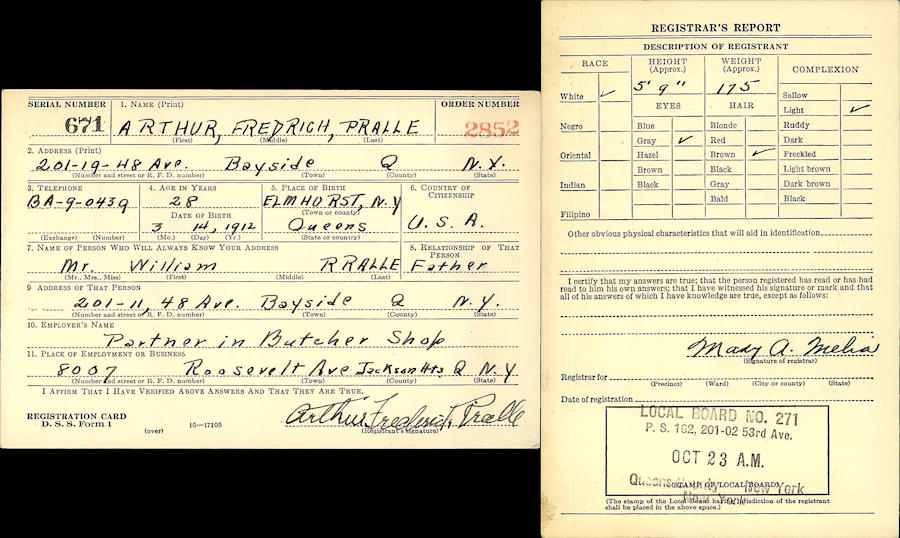 SERIAL NUMBER 1. NAME (Print) ORDER NUMBER
671 ARTHUR, FREDRICH, PRALLE 2852
(First) (Middle) (Last)
2. ADDRESS (Print)
201-19-48 Ave. Bayside Q N.Y.
(Number and street or R. F. D. number) (Town) (County) (State)
3. TELEPHONE 4. AGE IN YEARS 5. PLACE OF BIRTH 6. COUNTRY OF CITIZENSHIP
BA-9-0439 28 ELMHORST, N.Y
DATE OF BIRTH (Town or county)
3 14, 1912 Queens U.S.A.
(Exchange) (Number) (Mo.) (Day) (Yr.) (State or country)
7. NAME OF PERSON WHO WILL ALWAYS KNOW YOUR ADDRESS 8. RELATIONSHIP OF THAT PERSON
Mr. William RRALLE Father
(Mr., Mrs., Miss) (First) (Middle) (Last)
9. ADDRESS OF THAT PERSON
201-11, 48 Ave. Bayside Q N.Y.
(Number and street or R. F. D. number) (Town) (County) (State)
10. EMPLOYER'S NAME
Partner in Butcher Shop
11. PLACE OF EMPLOYMENT OR BUSINESS
8007 Roosevelt Ave Jackson Hts. Q N.Y.
(Number and street or R. F. D. number) (Town) (County) (State)
I AFFIRM THAT I HAVE VERIFIED ABOVE ANSWERS AND THAT THEY ARE TRUE.
REGISTRATION CARD
D. S. S. Form 1 (over) 16—17105
Arthur Frederick Pralle
(Registrant's signature)
REGISTRAR'S REPORT
DESCRIPTION OF REGISTRANT
RACE HEIGHT (Approx.) WEIGHT (Approx.) COMPLEXION
White ✓ 5' 9" 175 Sallow
EYES HAIR Light ✓
Negro Blue Blonde Ruddy
Gray ✓ Red Dark
Oriental Hazel Brown ✓ Freckled
Brown Black Light brown
Indian Black Gray Dark brown
Bald Black
Filipino
Other obvious physical characteristics that will aid in identification
I certify that my answers are true; that the person registered has read or has had
read to him his own answers; that I have witnessed his signature or mark and that
all of his answers of which I have knowledge are true, except as follows:
Mary A. Melia
(Signature of registrar)
Registrar for
(Precinct) (Ward) (City or county) (State)
Date of registration
LOCAL BOARD NO. 271
P. S. 162, 201-02 53rd Ave.
OCT 23 A.M.
Queens New York
(STAMP OF LOCAL BOARD)
New York
(The stamp of the Local Board having jurisdiction of the registrant
shall be placed in the above space.)